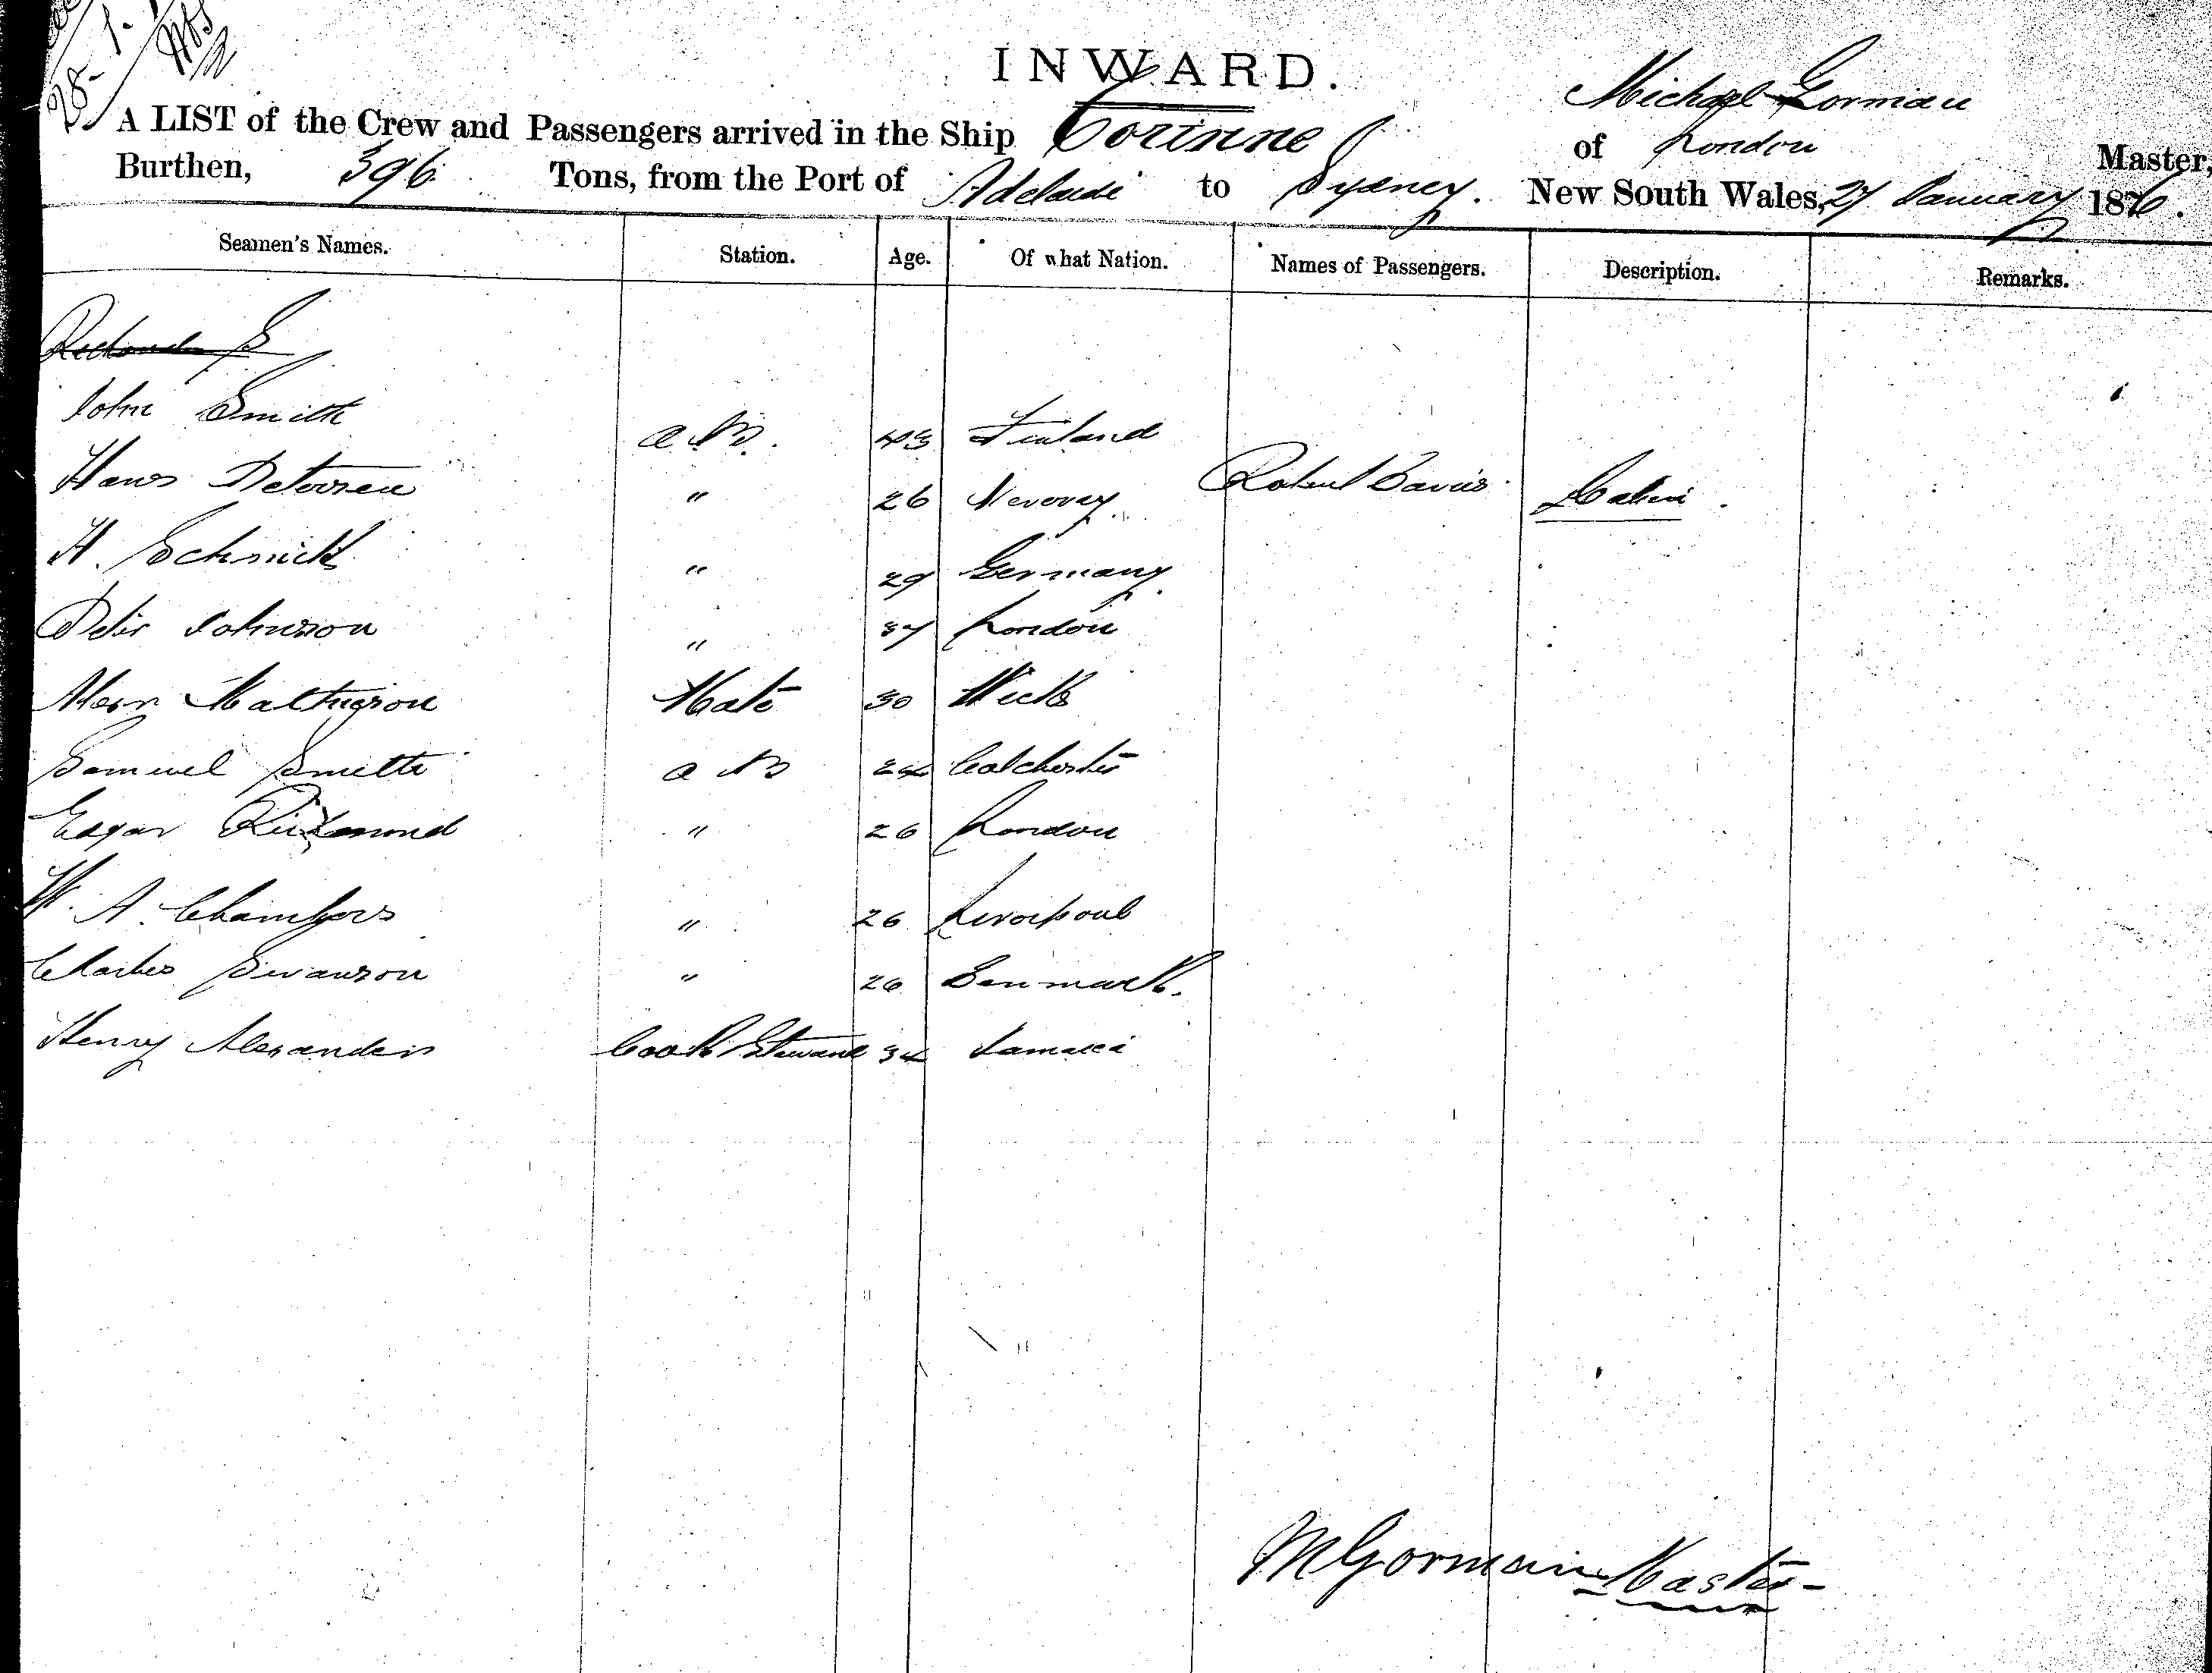 INWARD.
Michael Gorman
A LIST of the Crew and Passengers arrived in the Ship Corinne of London Master,
Burthen, 396 Tons, from the Port of Adelaide to Sydney. New South Wales, 27 January 1876.
Seamen's Names. Station. Age. Of what Nation. Names of Passengers. Description. Remarks.
John Smith A.B. 43 Finland
Hans Petersen " 26 Norway. Robert Davies Cabin.
H. Schmidt " 29 Germany.
Peter Johnson " 37 London
Alexr Mathieson Mate 30 Wick
Samuel Smith A B 24 Colchester
Edgar Richmond " 26 London
W. A. Chambers " 26 Liverpool
Charles Swanson " 26 Denmark.
Henry Alexander Cook Steward 34 Jamaica
M Gorman Master